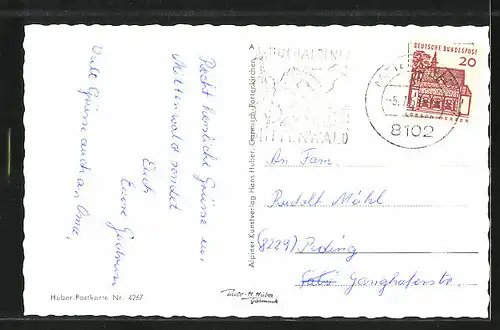 Recht herzliche Grüsse aus
Mittenwald sendet
Euch
Eure Gudrun
Viele Grüsse auch an Oma,
Huber-Postkarte Nr. 4267
Alpiner Kunstverlag Hans Huber, Garmisch-Partenkirchen
A
MITTENWALD
8102
DEUTSCHE BUNDESPOST
20
LORSCH/HESSEN
An Fam.
Rudolf Mühl
(8229) Piding
Ganghoferstr.
Foto-H. Huber
Garmisch